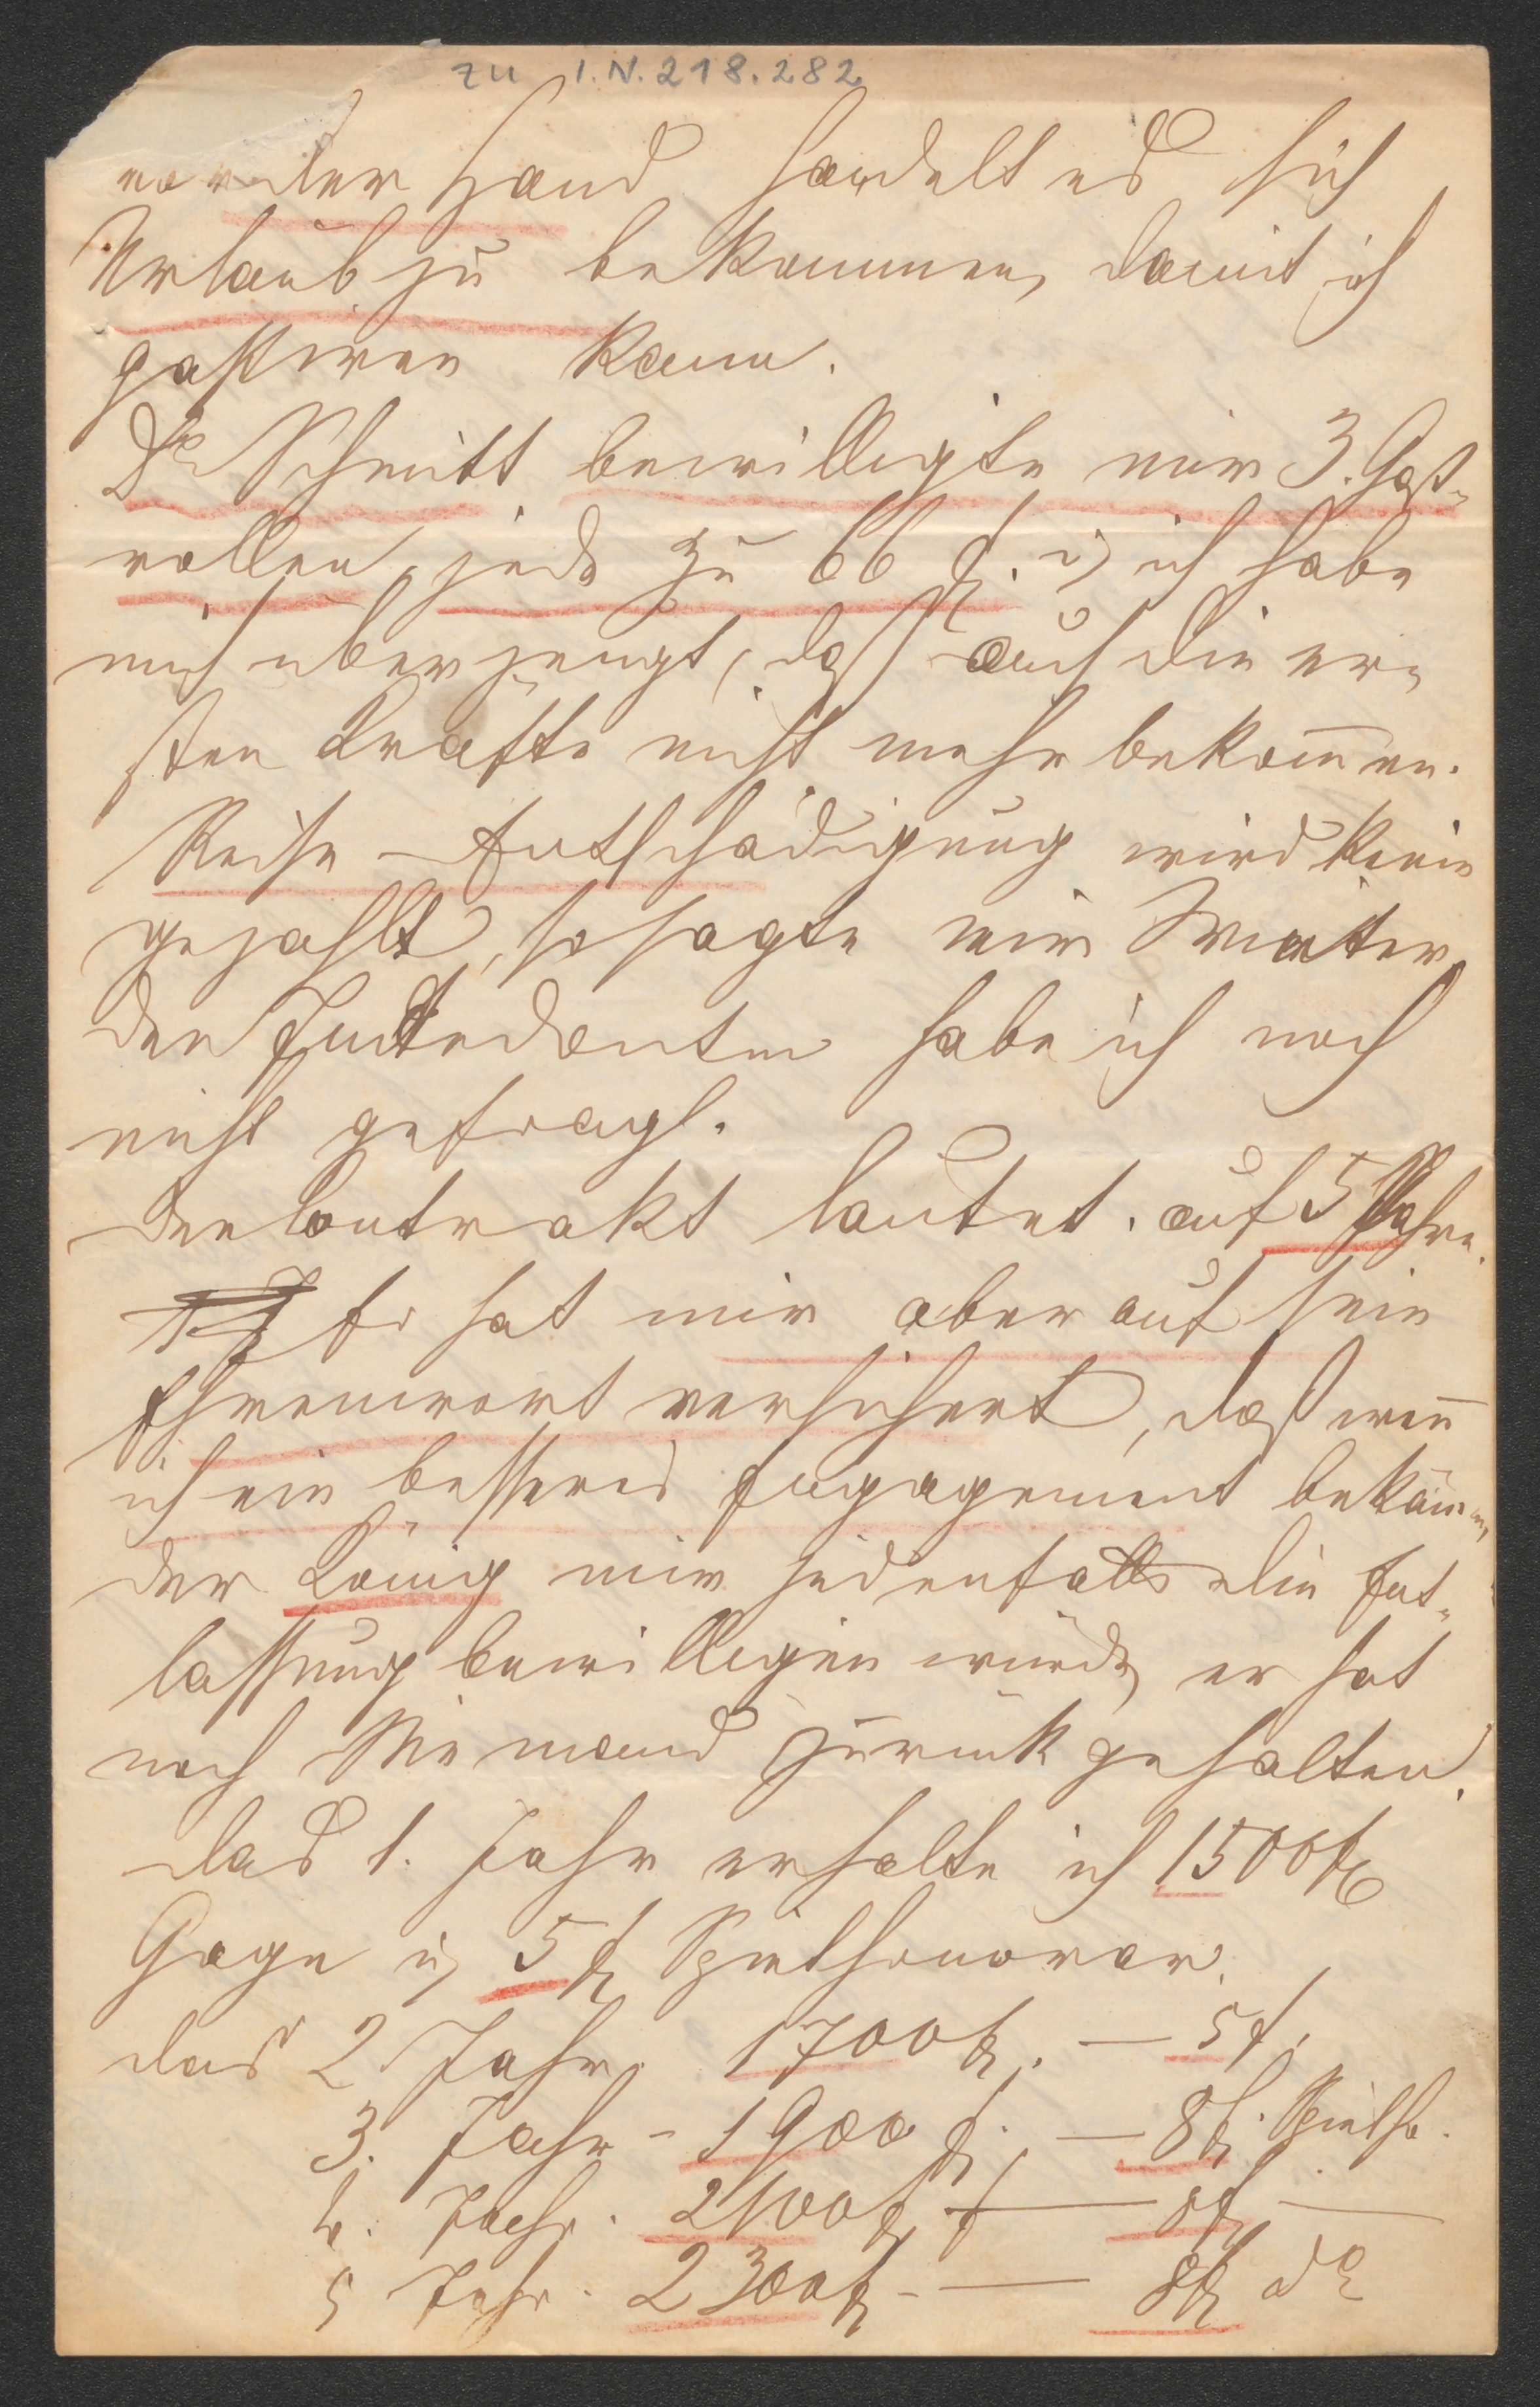 zu I.N. 218.282
vor der Hand handelt es sich
Urlaub zu bekommen, damit ich
gastiren kann.
Dr Schmitt bewilligte mir 3. Gast-
rollen, jede zu 66 f. u ich habe
mich überzeugt, daß auch die er-
sten Kräfte nicht mehr bekom̄en.
Reise-Entschädigung wird keine
gezahlt, so sagte mir Winter
den Intendanten habe ich noch
nicht gefragt.
Der Contrakt lautet. auf 5 Jahre.
Er hat mir aber auf sein
Ehrenwort versichert, daß wen̄
ich ein besseres Engagement bekäm̄e,
der König mir jedenfalls die Ent-
lassung bewilligen würde, er hat
noch Niemand zurück gehalten.
das 1. Jahr erhalte ich 1500 f
Gage u 5 f Spielhonorar.
das 2 Jahr. 1700 f. — 5 f.
3. Jahr - 1900 f. — 8 f. Spielh.
4. Jahr. 2100 f — 8 f —
5 Jahr. 2300 f - — 8 f do